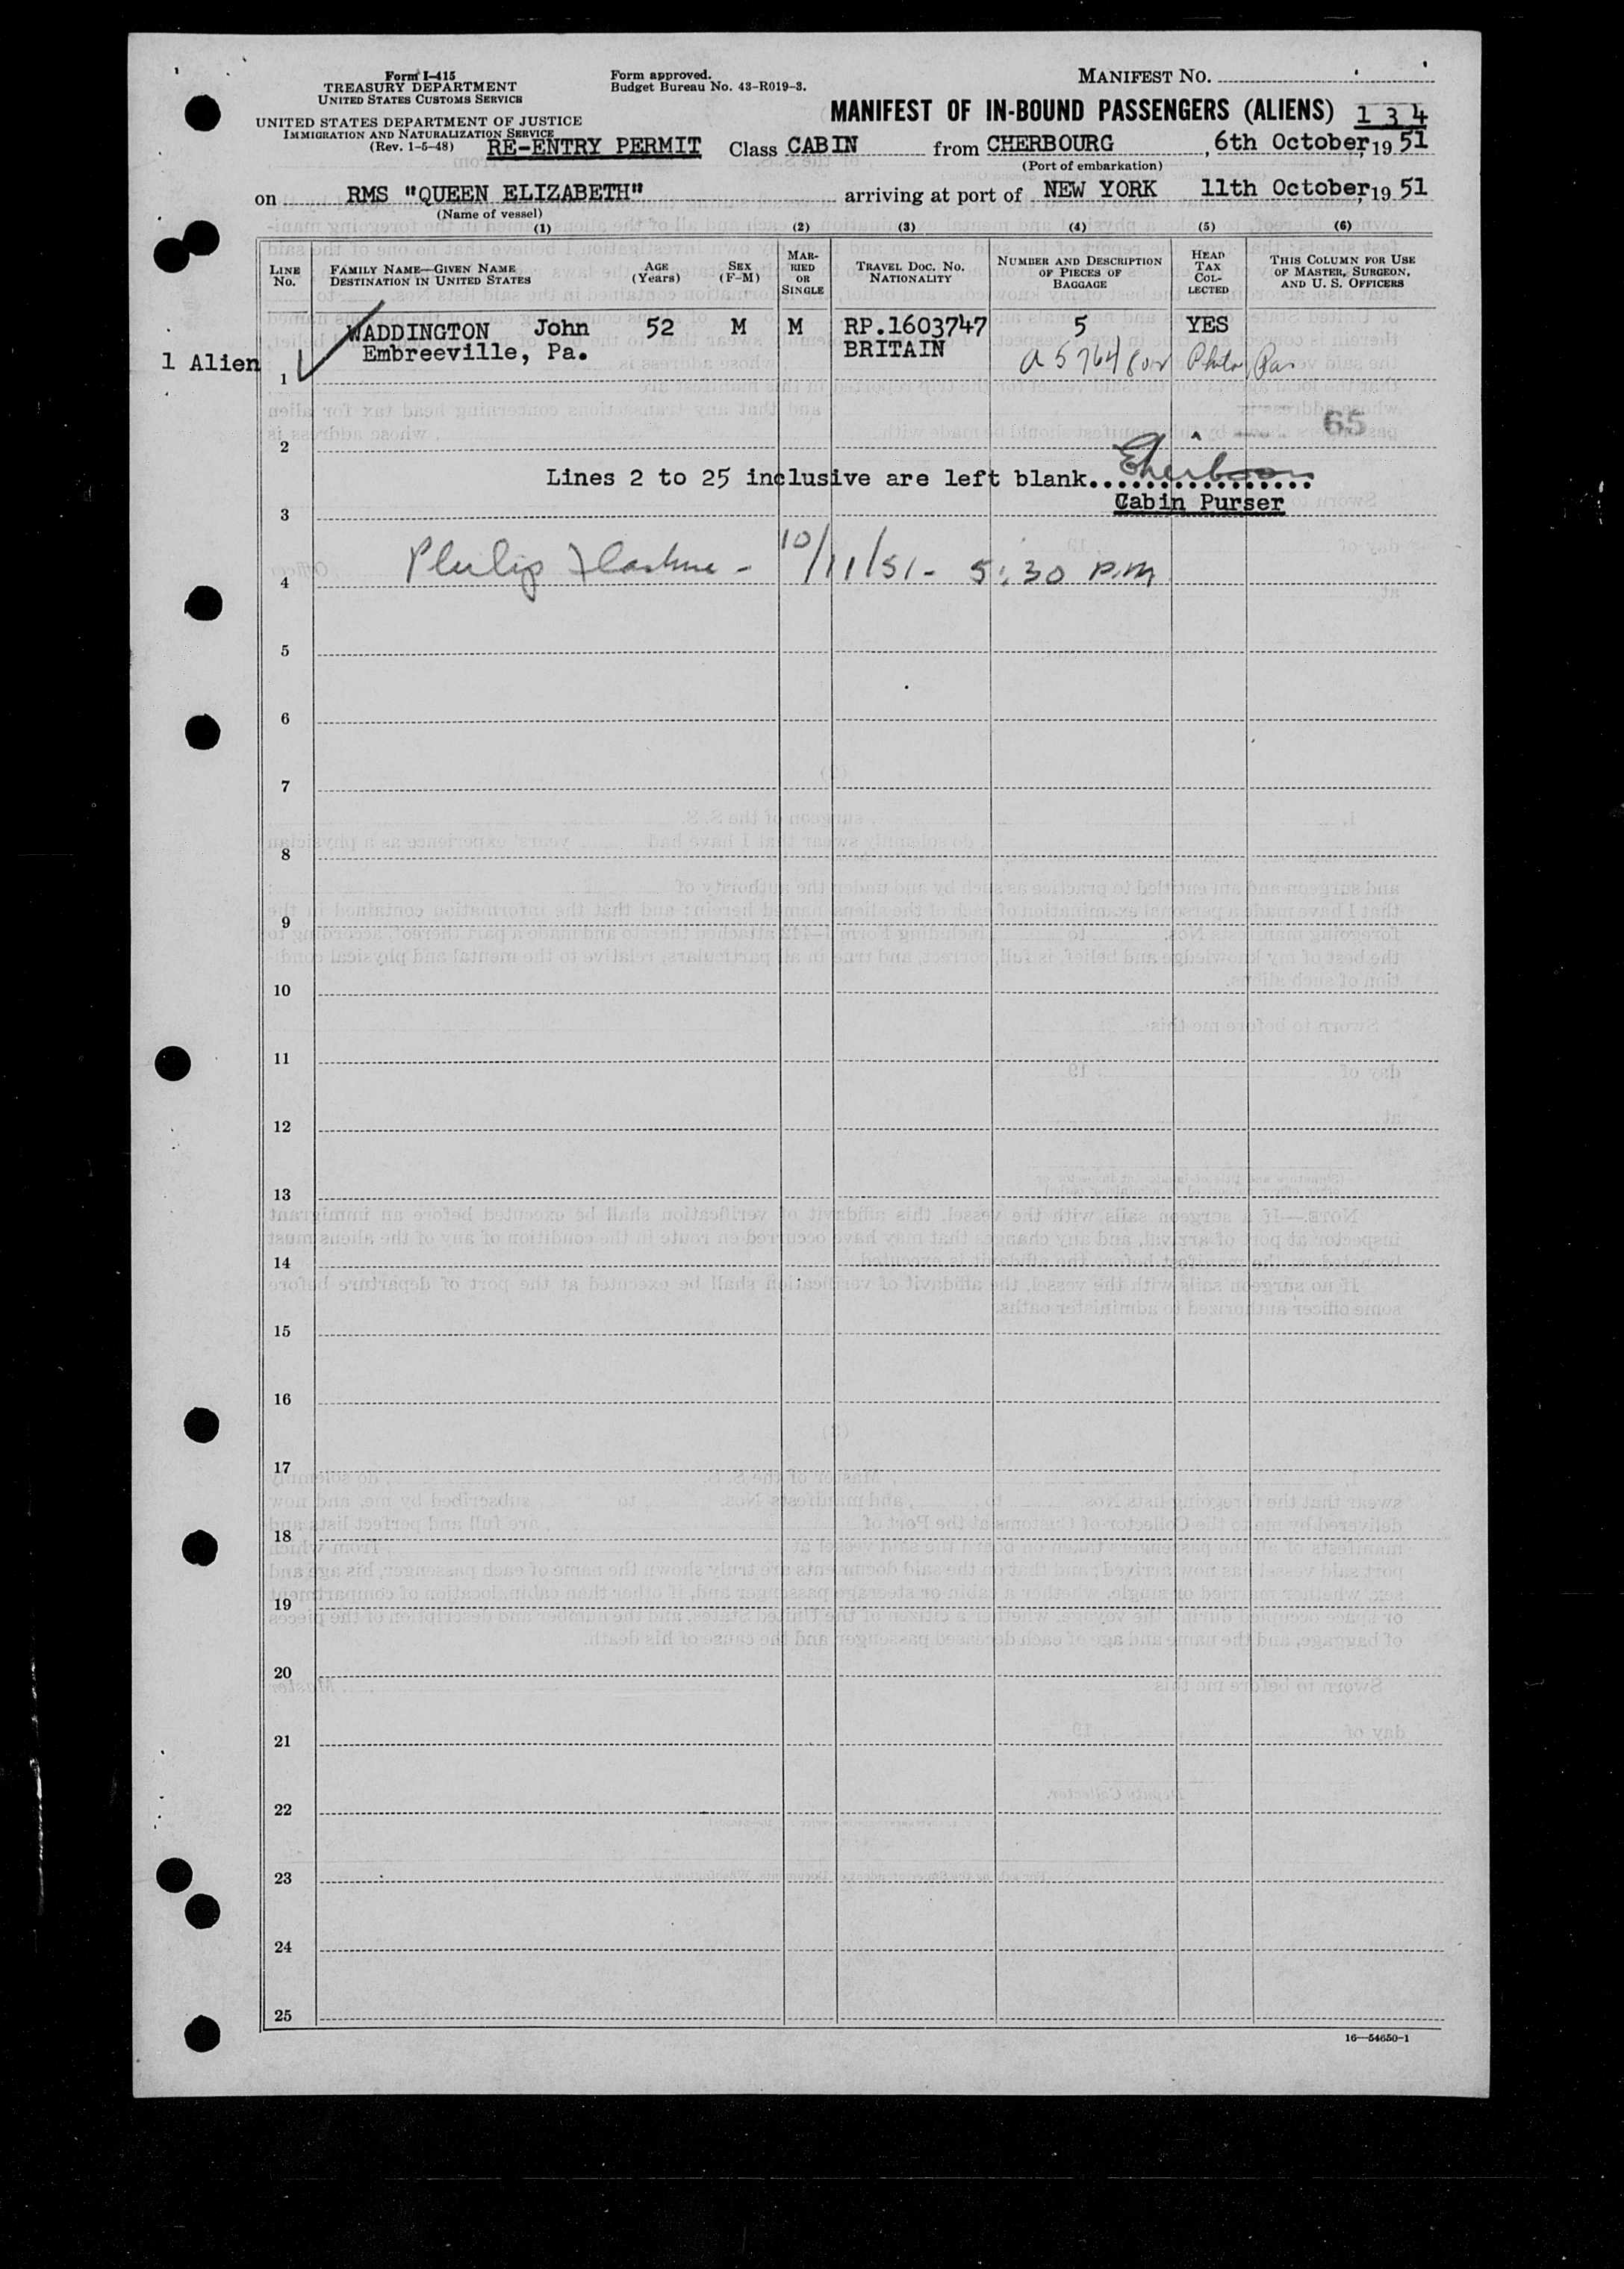 Form I-415
TREASURY DEPARTMENT
UNITED STATES CUSTOMS SERVICE
UNITED STATES DEPARTMENT OF JUSTICE
IMMIGRATION AND NATURALIZATION SERVICE
(Rev. 1-5-48)
Form approved.
Budget Bureau No. 43-R019-3.
MANIFEST NO.
MANIFEST OF IN-BOUND PASSENGERS (ALIENS) 134
RE-ENTRY PERMIT Class CABIN from CHERBOURG, 6th October, 19 51
(Port of embarkation)
on RMS "QUEEN ELIZABETH" arriving at port of NEW YORK 11th October, 19 51
(Name of vessel)
(1) (2) (3) (4) (5) (6)
LINE NO.
FAMILY NAME—GIVEN NAME DESTINATION IN UNITED STATES
AGE (Years)
SEX (F-M)
MARRIED OR SINGLE
TRAVEL DOC. NO. NATIONALITY
NUMBER AND DESCRIPTION OF PIECES OF BAGGAGE
HEAD TAX COLLECTED
THIS COLUMN FOR USE OF MASTER, SURGEON, AND U. S. OFFICERS
WADDINGTON John 52 M M RP.1603747 5 YES
1 Alien
Embreeville, Pa. BRITAIN
1
65
2
Lines 2 to 25 inclusive are left blank.................
Cabin Purser
3
Philip 10/11/51 - 5:30 P.M
4
5
6
7
8
9
10
11
12
13
14
15
16
17
18
19
20
21
22
23
24
25
16—54650-1